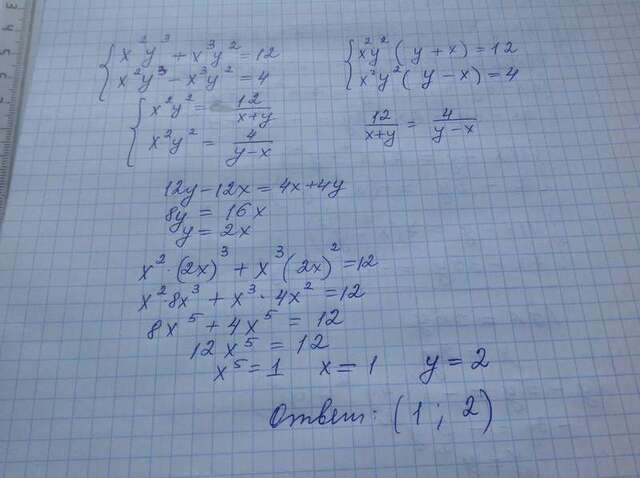 x²y³ + x³y² = 12
x²y³ - x³y² = 4
x²y² (y + x) = 12
x²y² (y - x) = 4
x²y² = 12/(x+y)
x²y² = 4/(y-x)
12/(x+y) = 4/(y-x)
12y - 12x = 4x + 4y
8y = 16x
y = 2x
x² · (2x)³ + x³ (2x)² = 12
x² · 8x³ + x³ · 4x² = 12
8x⁵ + 4x⁵ = 12
12x⁵ = 12
x⁵ = 1 x = 1 y = 2
Ответ: (1; 2)